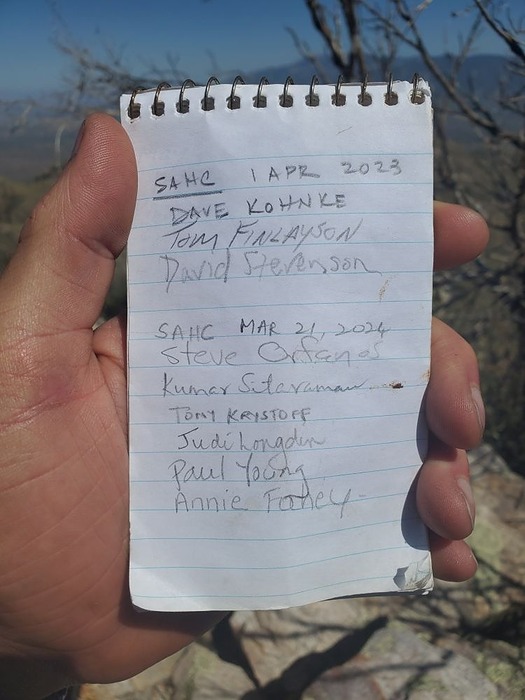 SAHC 1 APR 2023
DAVE KOHNKE
TOM FINLAYSON
David Stevenson
SAHC MAR 21, 2024
Steve Orfanos
Kumar Sitaraman
TOMY KRYSTOFF
Judi Longdin
Paul Young
Annie